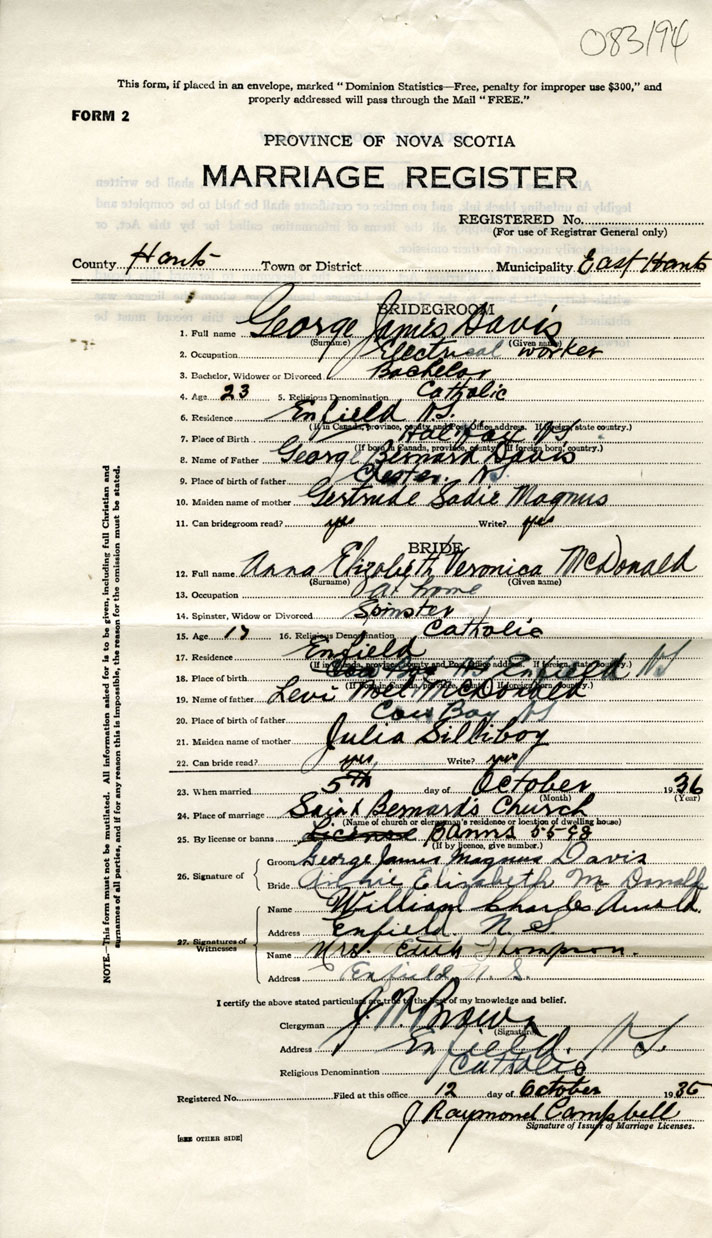 083194
This form, if placed in an envelope, marked "Dominion Statistics—Free, penalty for improper use $300," and
properly addressed will pass through the Mail "FREE."
FORM 2
PROVINCE OF NOVA SCOTIA
MARRIAGE REGISTER
REGISTERED No.
(For use of Registrar General only)
County Hants Town or District Municipality East Hants
BRIDEGROOM
1. Full name George James Davis
(Surname) (Given name)
2. Occupation Electrical worker
3. Bachelor, Widower or Divorced Bachelor
4. Age 23 5. Religious Denomination Catholic
6. Residence Enfield N.S.
(If in Canada, province, county and Post Office address. If foreign state country.)
7. Place of Birth Halifax N S
(If born in Canada, province, county. If foreign born, country.)
8. Name of Father George Bernard Davis
9. Place of birth of father Chester. N.S.
10. Maiden name of mother Gertrude Sadie Magnus
11. Can bridegroom read? yes Write? yes
BRIDE
12. Full name Anna Elizabeth Veronica McDonald
(Surname) (Given name)
13. Occupation at home
14. Spinster, Widow or Divorced Spinster
15. Age 17 16. Religious Denomination Catholic
17. Residence Enfield
(If in Canada, province, county and Post Office address. If foreign state country.)
18. Place of birth Enfield N S
(If born in Canada, province, county. If foreign born, country.)
19. Name of father Levi Noel McDonald
20. Place of birth of father Cow Bay N S
21. Maiden name of mother Julia Silliboy
22. Can bride read? yes Write? yes
23. When married 5th day of October 1936
(Month) (Year)
24. Place of marriage Saint Bernard's Church
(Name of church or clergyman's residence or location of dwelling house)
25. By license or banns License Banns 5598
(If by licence, give number.)
26. Signature of
Groom George James Magnus Davis
Bride Annie Elizabeth McDonald
27. Signatures of Witnesses
Name William Charles Arnold.
Address Enfield. N.S
Name Mrs. Edith Thompson.
Address Enfield N. S.
I certify the above stated particulars are true to the best of my knowledge and belief.
Clergyman Brown
(Signature)
Address Enfield. N.S.
Religious Denomination Catholic
Registered No. Filed at this office 12 day of October 1936
J Raymond Campbell
Signature of Issuer of Marriage Licenses.
[SEE OTHER SIDE]
NOTE.—This form must not be mutilated. All information asked for is to be given, including full Christian and
surnames of all parties, and if for any reason this is impossible, the reason for the omission must be stated.